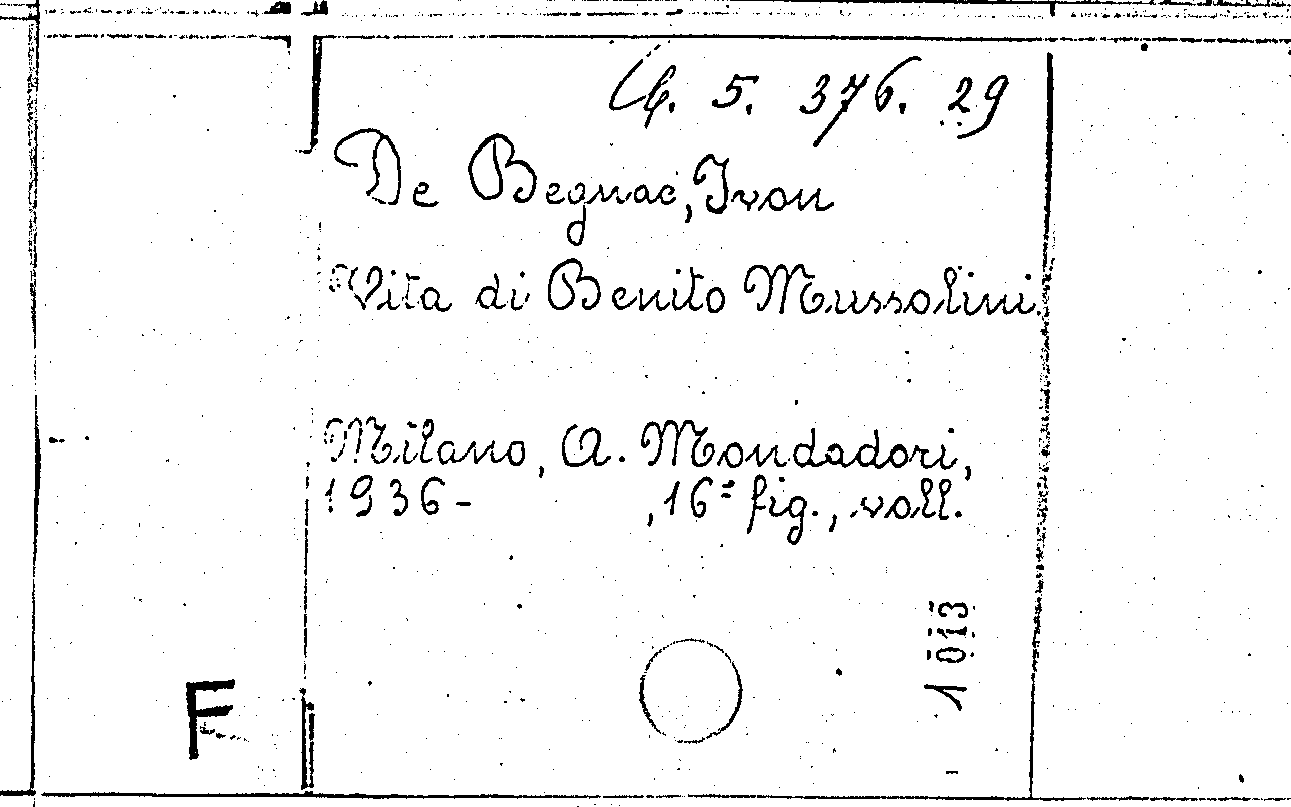 5. 376. 29
De Begnac, Ivon
Vita di Benito Mussolini.
Milano, A. Mondadori,
1936- , 16º fig., voll.
1013
F